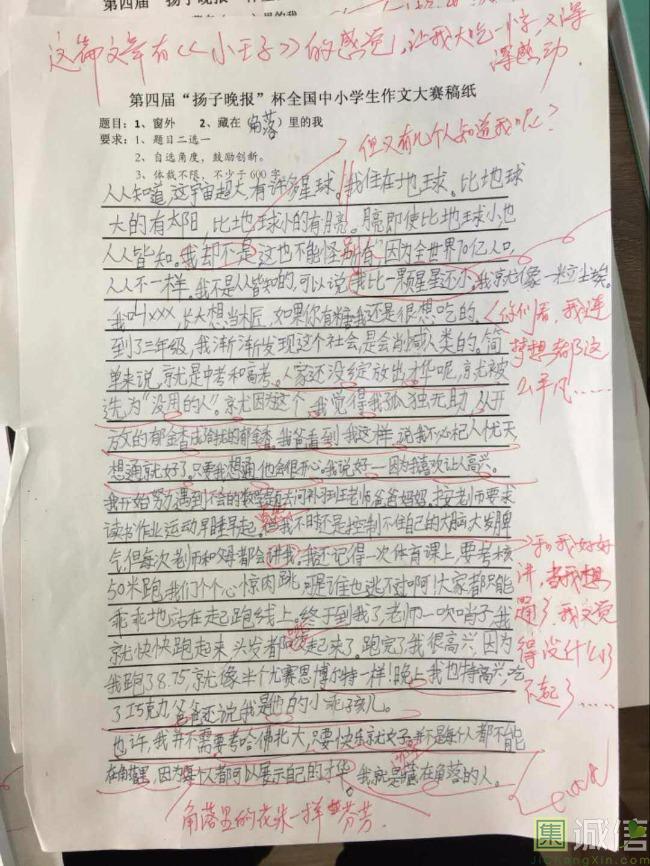 这篇文章有《小王子》的感觉，让我大吃一惊，又深
深感动
第四届“扬子晚报”杯全国中小学生作文大赛稿纸
题目：1、窗外 2、藏在（角落）里的我
要求：1、题目二选一
2、自选角度，鼓励创新。
3、体裁不限，不少于600字
但又有几个人知道我呢？
人人知道，这宇宙超大，有许多星球。我住在地球。比地球
大的有太阳，比地球小的有月亮。月亮即使比地球小也
人人皆知。我却不是这也不能怪别人，因为全世界70亿人口，
人人不一样。我不是人皆知的，可以说我比一颗星星还小。我就像一粒尘埃。
我叫xxx，长大想当木匠，如果你有糖我还是很想吃的。
你们看，我连
梦想都这
么平凡……
到了三年级，我渐渐发现这个社会，是会削减人类的。简
单来说，就是中考和高考。人家还没绽放出才华呢，就被
选为“没用的人”。就因为这个，我觉得我孤独无助，从开
放的郁金香成冷壮的郁金香。我爸看到我这样，说我不必杞人忧天
想通就好了。只要我想通，他会很开心。我说好——因为我喜欢让人高兴。
我开始努力，遇到不会的数学题去问补习班老师爸爸妈妈。按老师要求
读书作业运动早睡早起。但我不时还是控制不住自己的大脑大发脾
气，但每次老师和父母都会讲我。我还记得一次体育课上，要考核
和我好好
讲，当我想
通了，我又觉
得没什么了
不起了……
50米跑，我们个个心惊肉跳，可是谁也逃不过啊！大家都只能
乖乖地站在起跑线上。终于到我了，老师一吹哨子，我
就快快跑起来，头发都飘起来了。跑完了我很高兴，因为
我跑了8.75，就像半个尤赛恩博尔特一样！晚上我也特高兴，吃
了巧克力，爸爸还说我是他的小乖孩儿。
也许，我并不需要考哈佛北大，只要快乐就好，并不是每个人都不能
在角落里，因为每个人都可以展示自己的才华。我就是藏在角落的人。
角落里的花朵一样芬芳
集 诚信
Jichengxin.com